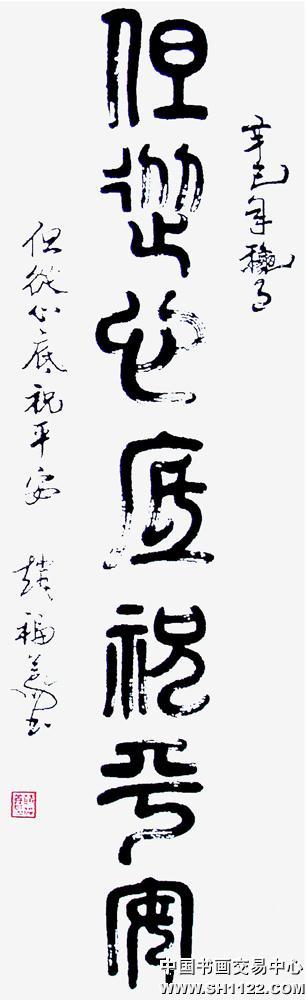 辛巳年穐月
但從心底祝平安
但從心底祝平安 趙福義书
中国书画交易中心
www.SH1122.com